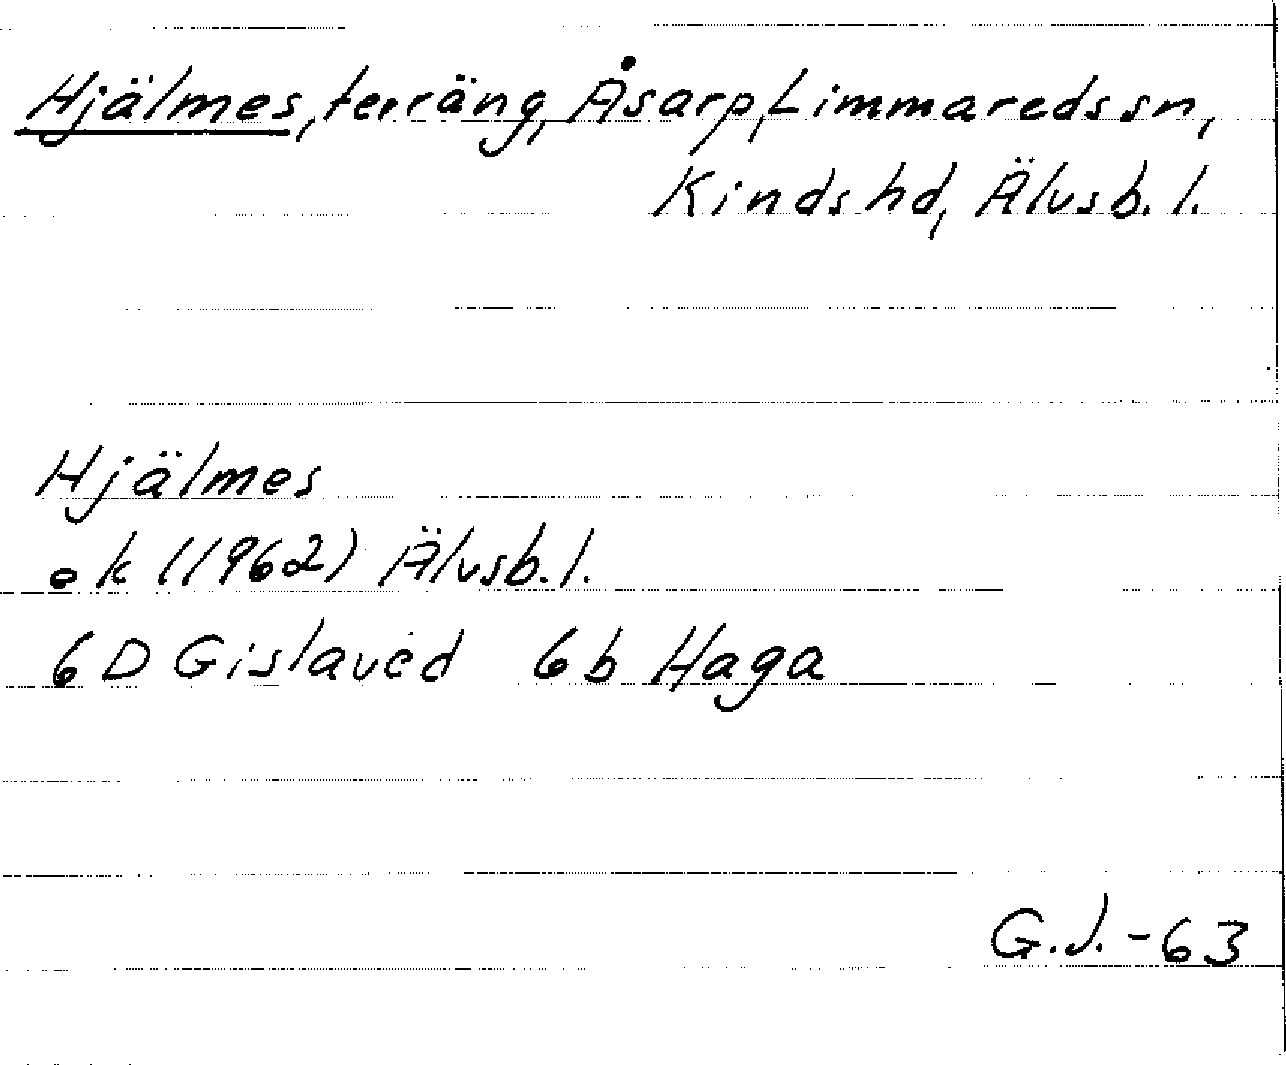 Hjälmes, terräng, Åsarp, Limmareds sn,
Kinds hd, Älvsb. l.
Hjälmes
ek (1962) Älvsb. l.
6 D Gislaved 6 b Haga
G.J. -63